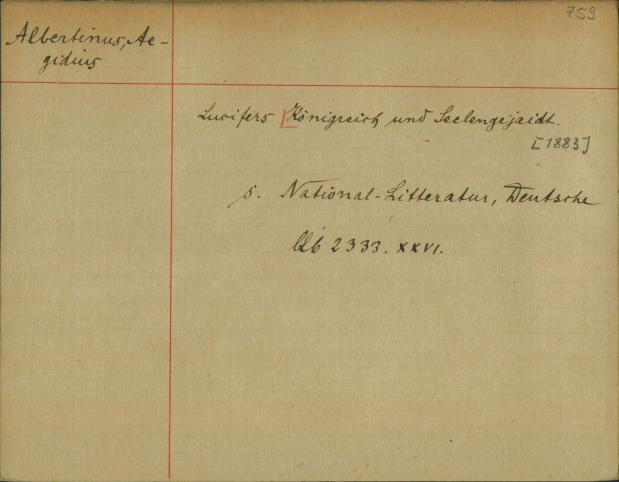 759
Albertinus, Ae-
gidius
Lucifers Königreich und Seelengejaidt.
[1883]
s. National-Litteratur, Deutsche
Qb 2333. XXVI.